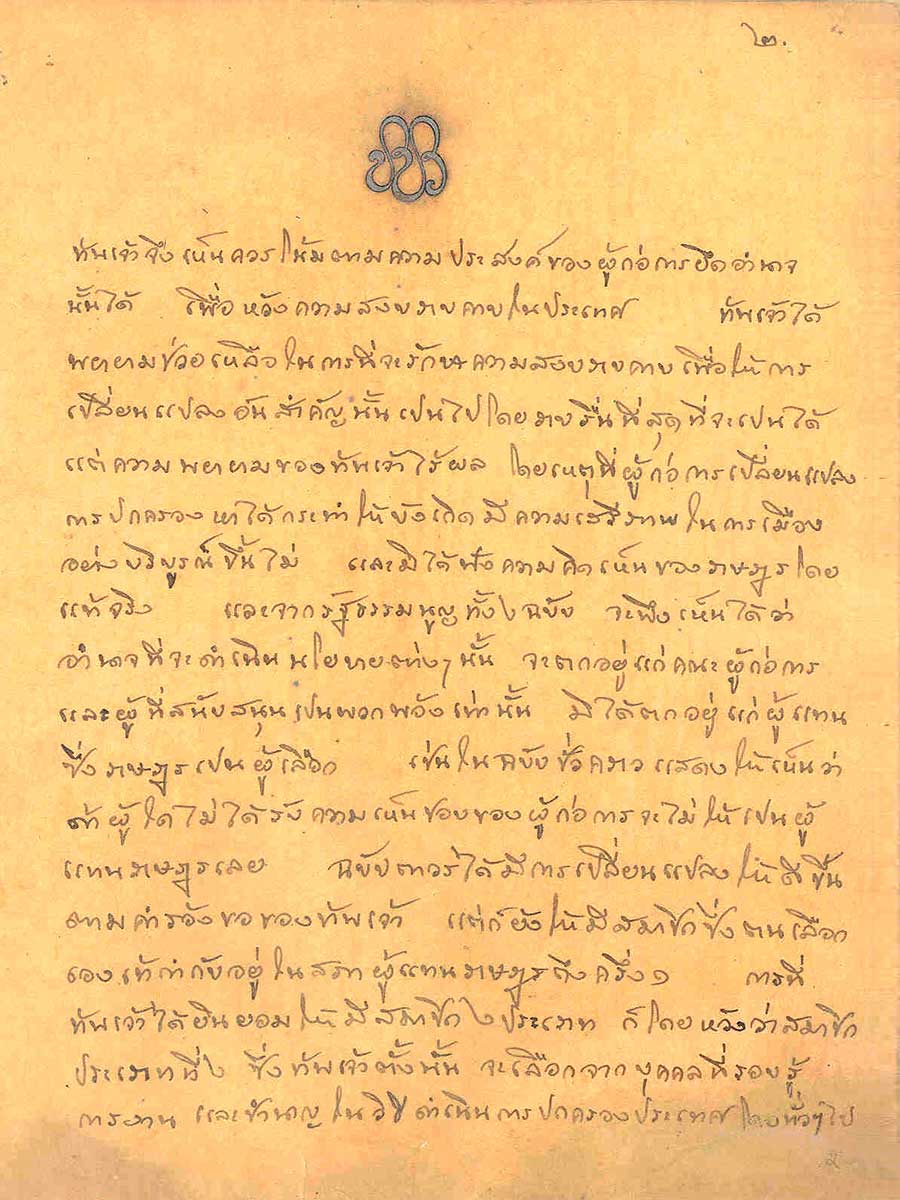 ๒.
ข้าพเจ้าจึงเห็นควรโน้มตามความประสงค์ของผู้ก่อการยึดอำนาจ
นั้นได้ เพื่อหวังความสงบราบคาบในประเทศ ข้าพเจ้าได้
พยายามช่วยเหลือในการที่จะรักษาความสงบราบคาบเพื่อให้การ
เปลี่ยนแปลงอันสำคัญนั้นเปนไปโดยราบรื่นที่สุดที่จะเปนได้
แต่ความพยายามของข้าพเจ้าไร้ผล โดยเหตุที่ผู้ก่อการเปลี่ยนแปลง
การปกครองหาได้กระทำให้บังเกิดมีความเสรีภาพในการเมือง
อย่างบริบูรณ์ขึ้นไม่ และมิได้ฟังความคิดเห็นของราษฎรโดย
แท้จริง และจากรัฐธรรมนูญทั้ง ๒ ฉบับ จะพึงเห็นได้ว่า
อำนาจที่จะดำเนินนโยบายต่างๆ นั้น จะตกอยู่แก่คณะผู้ก่อการ
และผู้ที่สนับสนุนเปนพวกพ้องเท่านั้น มิได้ตกอยู่แก่ผู้แทน
ซึ่งราษฎรเปนผู้เลือก เช่นในฉบับชั่วคราว แสดงให้เห็นว่า
ถ้าผู้ใดไม่ได้รับความเห็นชอบของผู้ก่อการจะไม่ให้เปนผู้
แทนราษฎรเลย ฉบับถาวรได้มีการเปลี่ยนแปลงให้ดีขึ้น
ตามคำร้องขอของข้าพเจ้า แต่ก็ยังให้มีสมาชิกซึ่งตนเลือก
เองเข้ากำกับอยู่ในสภาผู้แทนราษฎรถึงครึ่ง ๑ การที่
ข้าพเจ้าได้ยินยอมให้มีสมาชิก ๒ ประเภท ก็โดยหวังว่าสมาชิก
ประเภทที่ ๒ ซึ่งข้าพเจ้าตั้งนั้น จะเลือกจากบุคคลที่รอบรู้
การงาน และชำนาญในวิธีดำเนินการปกครองประเทศโดยทั่วๆ ไป